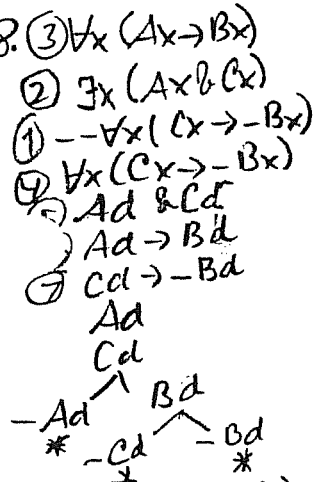 8. ③ ∀x (Ax→Bx)
② ∃x (Ax & Cx)
① --∀x( Cx → -Bx)
④ ∀x(Cx→ -Bx)
Ad & Cd
Ad → Bd
⑦ Cd → -Bd
Ad
Cd
-Ad Bd
* -Cd -Bd
* *